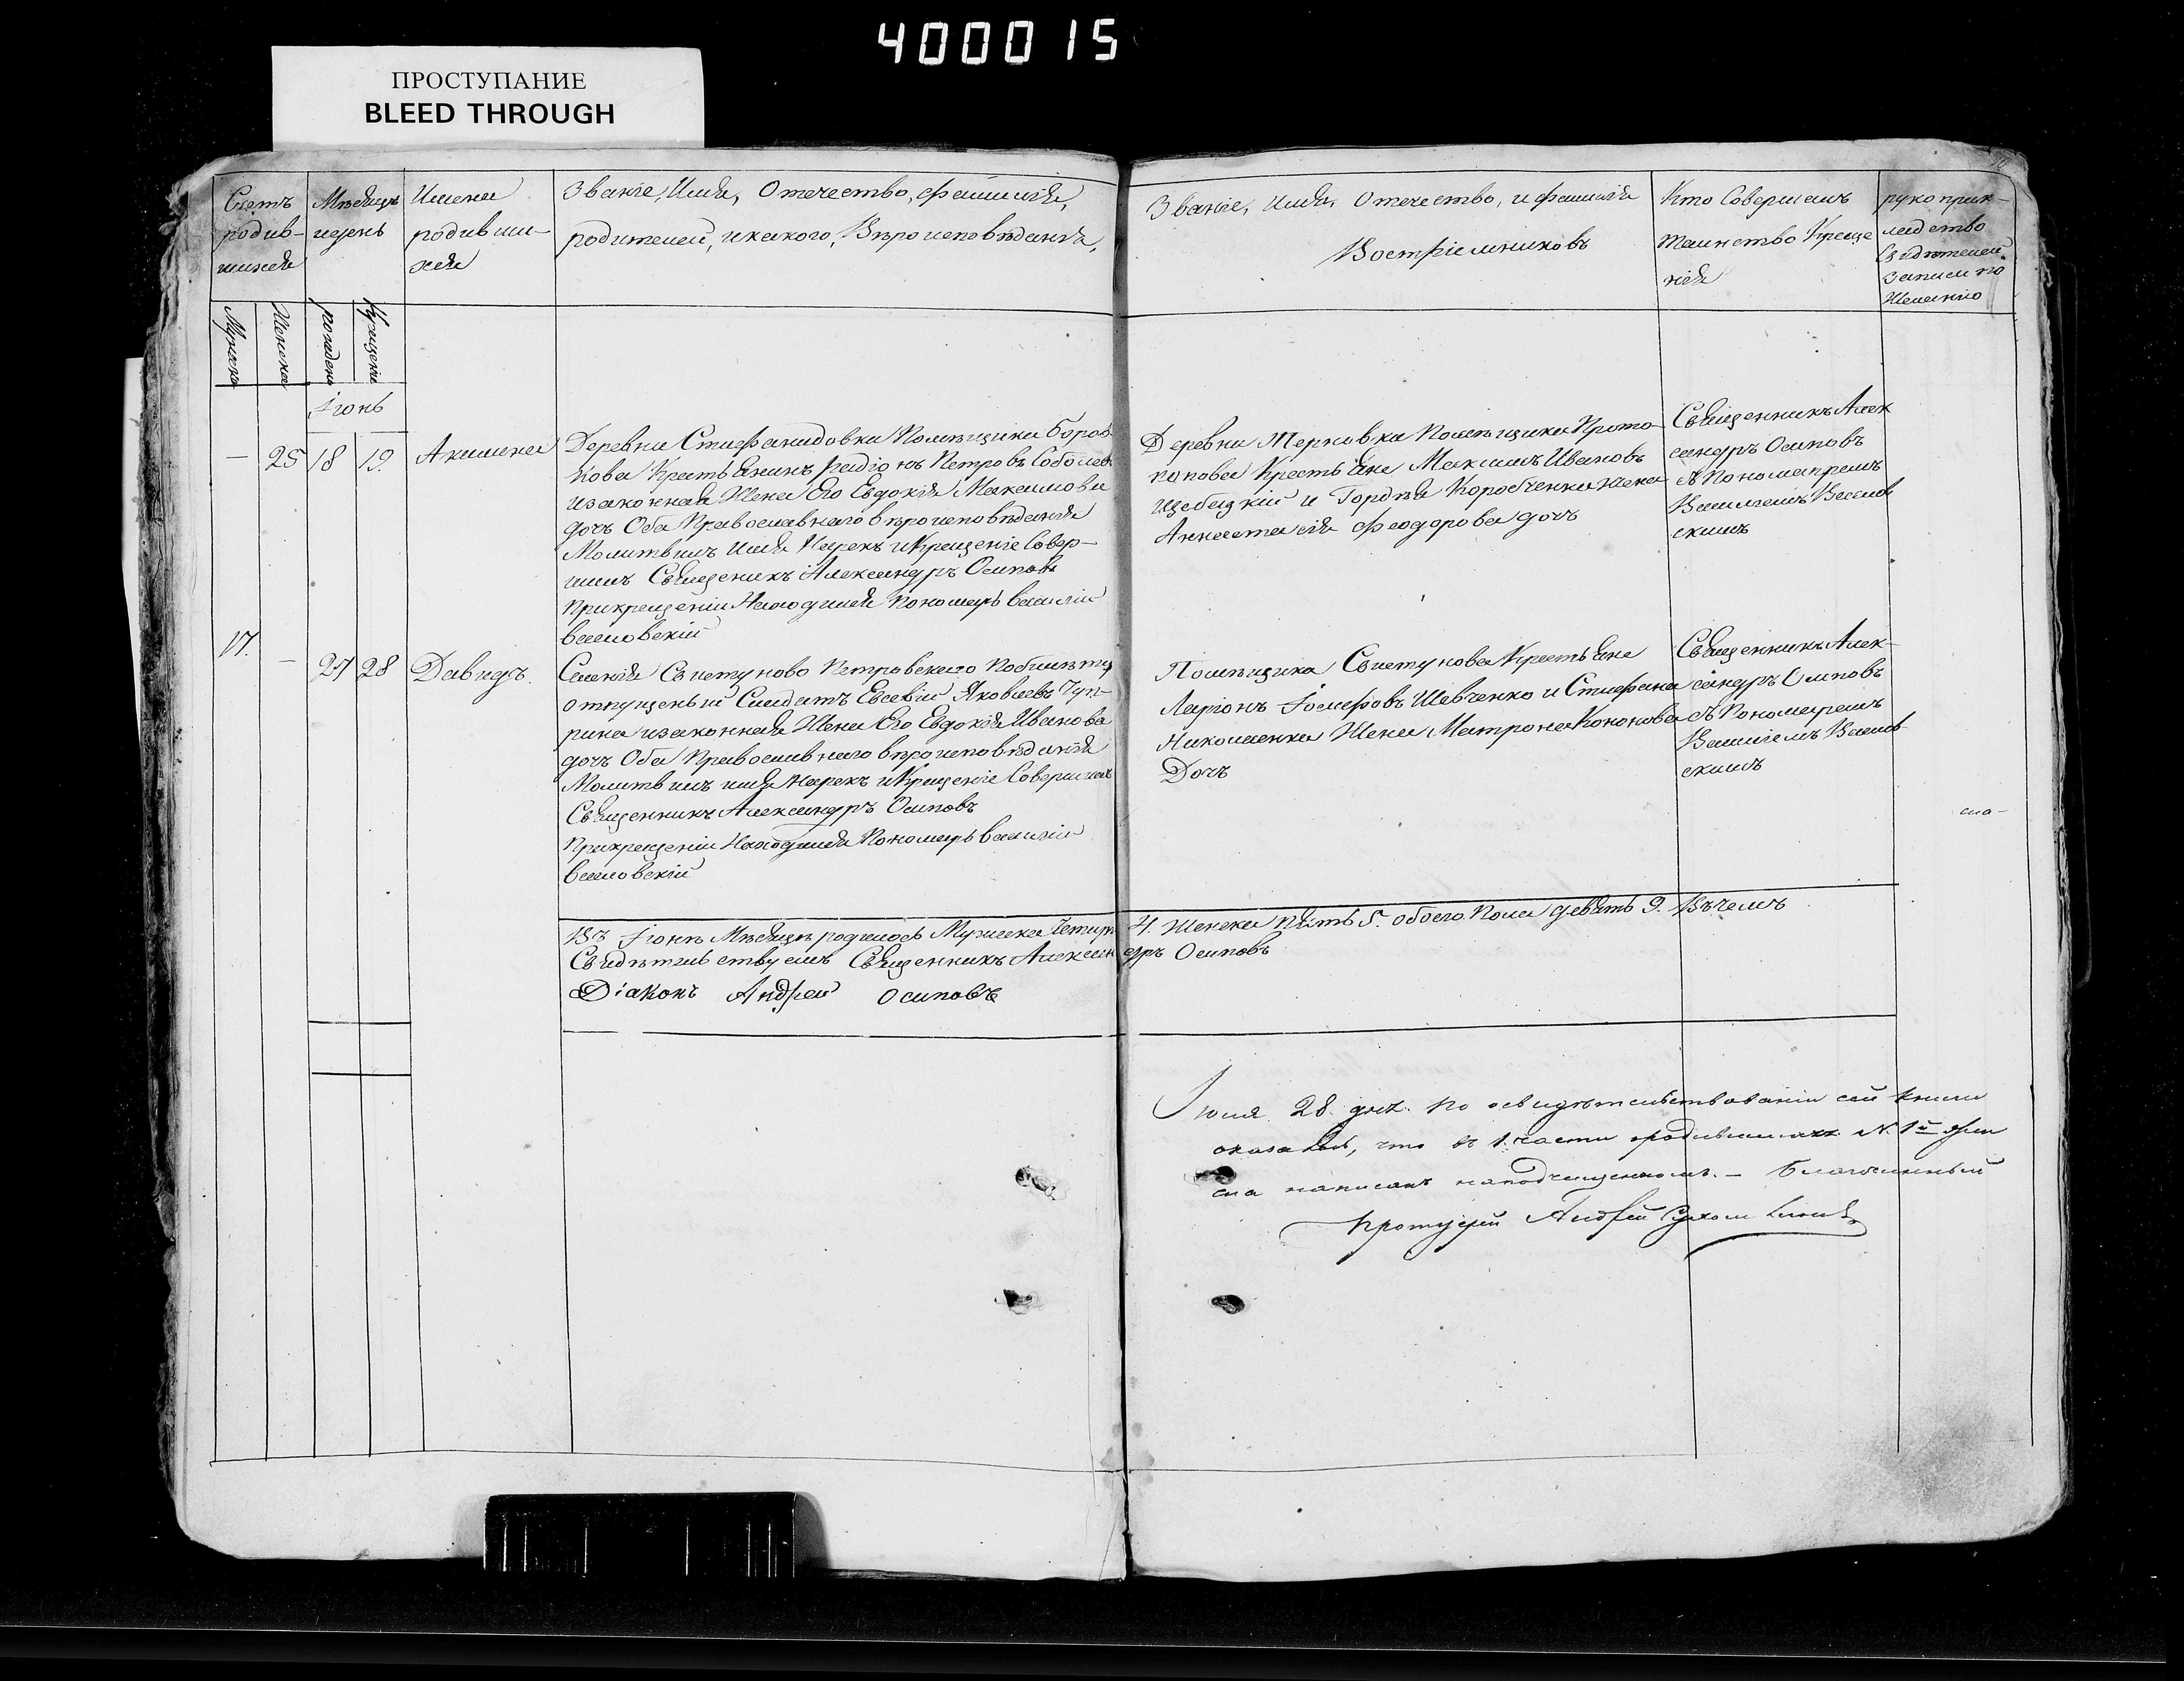 400015
ПРОСТУПАНИЕ
BLEED THROUGH
Счетъ
родив-
шихся
Мѣсяцъ
и день
Имена
родивши-
хся
Званіе, Имя, Отечество, Фамилія,
родителей, и какого, Вѣроисповѣданія,
Званіе, Имя, Отечество, и фамилія
Воспріемниковъ
Кто Совершалъ
таинство Креще
нія
рукоприк-
ладство
Свидѣтелей
Записи по
Желанію
Мужеска
Женска
рожденія
Крещенія
Іюнь
— 25 18 19. Акилина
Деревни Стефанидовки Помѣщика Боров
кова Крестьянинъ Родіонъ Петровъ Соболев
и законная Жена Его Евдокія Максимова
дочь Оба Православнаго вѣроисповѣданія
Молитвилъ Имя Нарекъ и Крещеніе Совер-
шилъ Священикъ Александръ Осиповъ
При крещеніи Находился Пономарь василій
васловскій
Деревни Терновки Помѣщика Прото-
попова Крестьяне Максимъ Ивановъ
и Гордѣя Коробченка жена
Анастасія Феодорова дочь
Священникъ Алек
сандръ Осиповъ
съ Пономаремъ
Васильемъ Васлов
скимъ
17. — 27 28 Давидъ.
Селенія Свистуново Петровскаго По билѣту
отпущеный Салдатъ Евсевій Яковлевъ Чуп-
рина и законная Жена Его Евдокія Иванова
дочь Оба Православнаго вѣроисповѣданія
Молитвилъ имя Нарекъ и Крещеніе Совершилъ
Священникъ Александръ Осиповъ
При крещеніи Находился Пономарь василій
васловскій
Помѣщика Свистунова Крестьяне
Ларіонъ Іосифовъ Шевченко и Стефана
Николаенка Жена Матрона Кононова
Дочь
Священникъ Алек-
сандръ Осиповъ
съ Пономаремъ
Василіемъ Васлов-
скимъ
сла-
Въ Іюнѣ Мѣсяцѣ родилось Мужеска Четыре 4. Женска пять 5. обоего Пола девять 9. Въ чемъ
Свидѣтельствуемъ Священникъ Александръ Осиповъ
Діаконъ Андрей Осиповъ
Іюля 28. дня. По освидѣтельствованіи сей книги
оказалось, что въ 1. части о родившихся N. 1й
сла написанъ на подчищенномъ. — Благочинный
Протоіерей Андрей